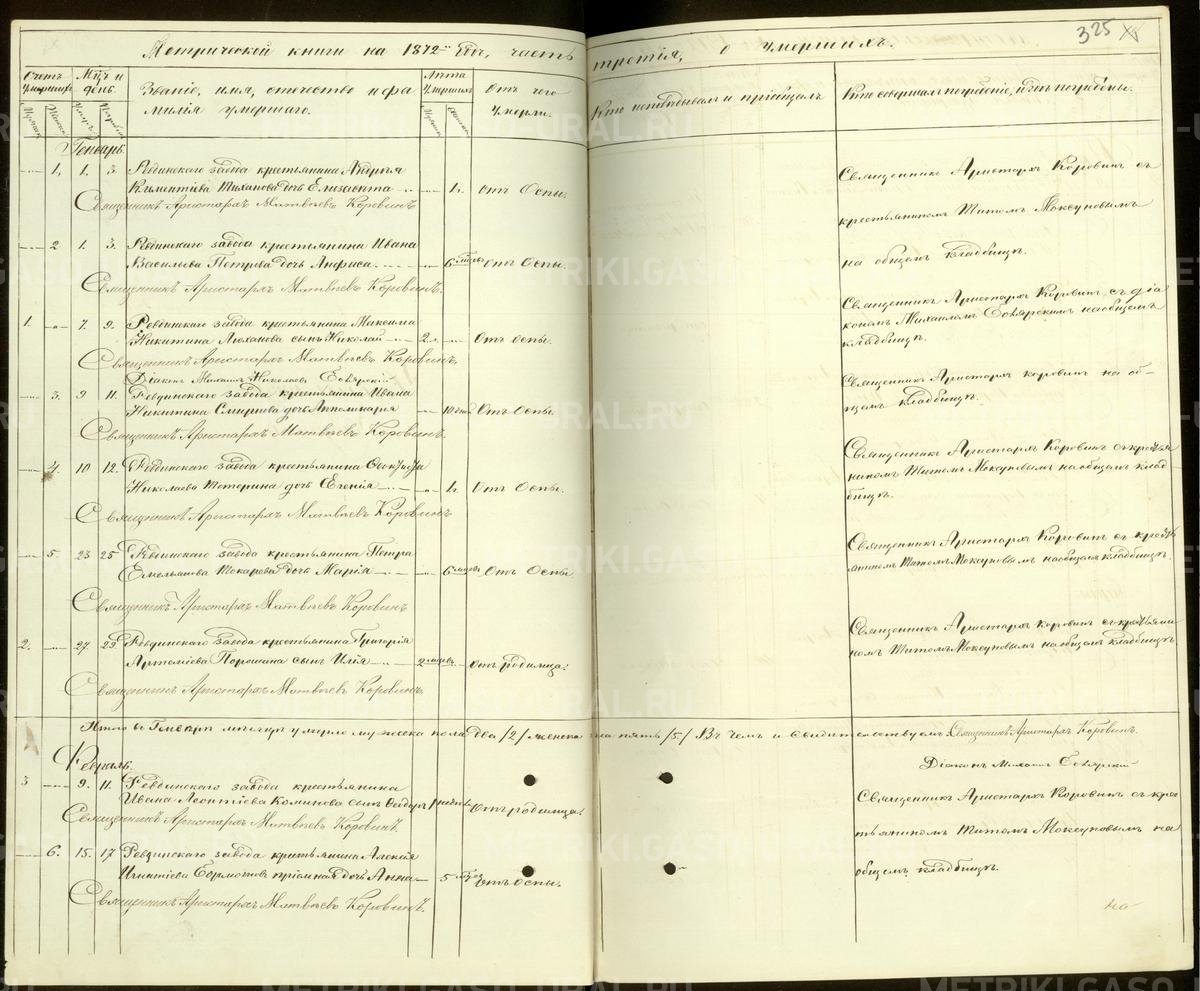 325
Метрической книги на 1872й годъ, часть третія, о умершихъ.
Счетъ умершихъ
Мцъ и день.
Званіе, имя, отчество и фамилія умершаго.
Лѣта умершаго
Отъ чего умерли.
Кто исповѣдывалъ и пріобщалъ
Кто совершалъ погребеніе, и гдѣ погребены.
Генварь.
1. 1. 3. Ревдинскаго завода крестьянина Андрея
Климентіева Тиханова дочь Елизавета 1 г. отъ Оспы.
Священникъ Аристархъ Матвѣевъ Коровинъ
Священникъ Аристархъ Коровинъ съ
крестьяниномъ Титомъ Мокеуновымъ
на общемъ кладбищѣ.
2 1. 3. Ревдинскаго завода крестьянина Ивана
Васильева Петрова дочь Анфиса 6 мцовъ Отъ Оспы.
Священникъ Аристархъ Матвѣевъ Коровинъ.
1. 7. 9. Ревдинскаго завода крестьянина Максима
Никитина сынъ Николай 2 г. Отъ оспы.
Священникъ Аристархъ Матвѣевъ Коровинъ.
Діаконъ Михаилъ Николаевъ
Священникъ Аристархъ Коровинъ съ діа
кономъ Михаиломъ на общемъ
кладбищѣ.
3. 9 11. Ревдинскаго завода крестьянина Ивана
Никитина Смирнова дочь Апполинарія 10 Отъ Оспы
Священникъ Аристархъ Матвѣевъ Коровинъ.
Священникъ Аристархъ Коровинъ на об-
щемъ кладбищѣ.
4. 10 12. Ревдинскаго завода крестьянина
Николаева Тетерина дочь Евгенія 1 г. Отъ Оспы.
Священникъ Аристархъ Матвѣевъ Коровинъ
Священникъ Аристархъ Коровинъ съ крестья
ниномъ Титомъ Мокеуновымъ на общемъ клад-
бищѣ.
5. 23 25 Ревдинскаго завода крестьянина Петра
Емельянова Токарева дочь Марія 6 мцовъ Отъ Оспы
Священникъ Аристархъ Матвѣевъ Коровинъ
Священникъ Аристархъ Коровинъ съ кресть
яниномъ Титомъ Мокеуновымъ на общемъ кладбищѣ.
2. 27. 29 Ревдинскаго завода крестьянина Григорія
Порошина сынъ Илія 2 мцовъ. отъ родимца.
Священникъ Аристархъ Матвѣевъ Коровинъ
Священникъ Аристархъ Коровинъ съ крестьяни
номъ Титомъ Мокеуновымъ на общемъ кладбищѣ
Итого въ Генварѣ мѣсяцѣ умерло мужеска пола два /2/ женска пять /5/ Въ чемъ и свидетельствуемъ: Священникъ Аристархъ Коровинъ.
Діаконъ Михаилъ
Февраль.
3 9. 11. Ревдинскаго завода крестьянина
Ивана Леонтіева сынъ Отъ родимца.
Священникъ Аристархъ Матвѣевъ Коровинъ.
Священникъ Аристархъ Коровинъ съ крес
тьяниномъ Титомъ Мокеуновымъ на
общемъ кладбищѣ.
6. 15. 17 Ревдинскаго завода крестьянина Алексія
Игнатіева пріемная дочь Анна 5 отъ оспы.
Священникъ Аристархъ Матвѣевъ Коровинъ.
но
METRIKI.GASO-URAL.RU